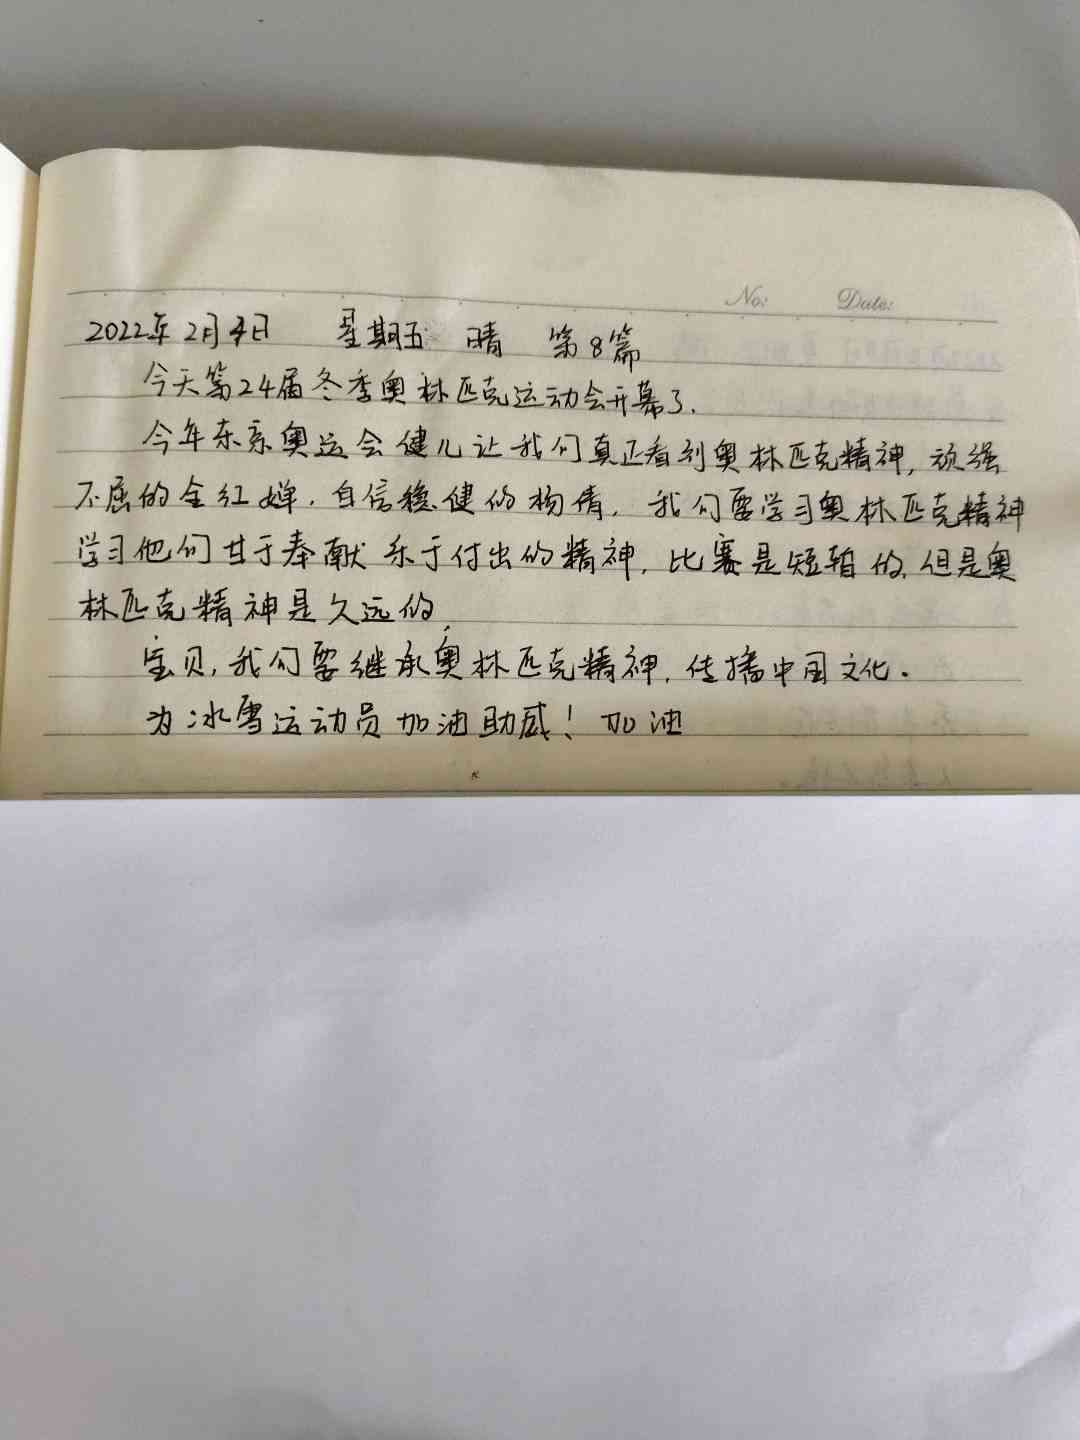 No: Date:
2022年2月4日 星期五 晴 第8篇
今天第24届冬季奥林匹克运动会开幕了.
今年东京奥运会健儿让我们真正看到奥林匹克精神,顽强
不屈的全红婵,自信稳健的杨倩,我们要学习奥林匹克精神
学习他们甘于奉献 乐于付出的精神,比赛是短暂的,但是奥
林匹克精神是久远的,
宝贝,我们要继承奥林匹克精神,传播中国文化.
为冰雪运动员加油助威!加油